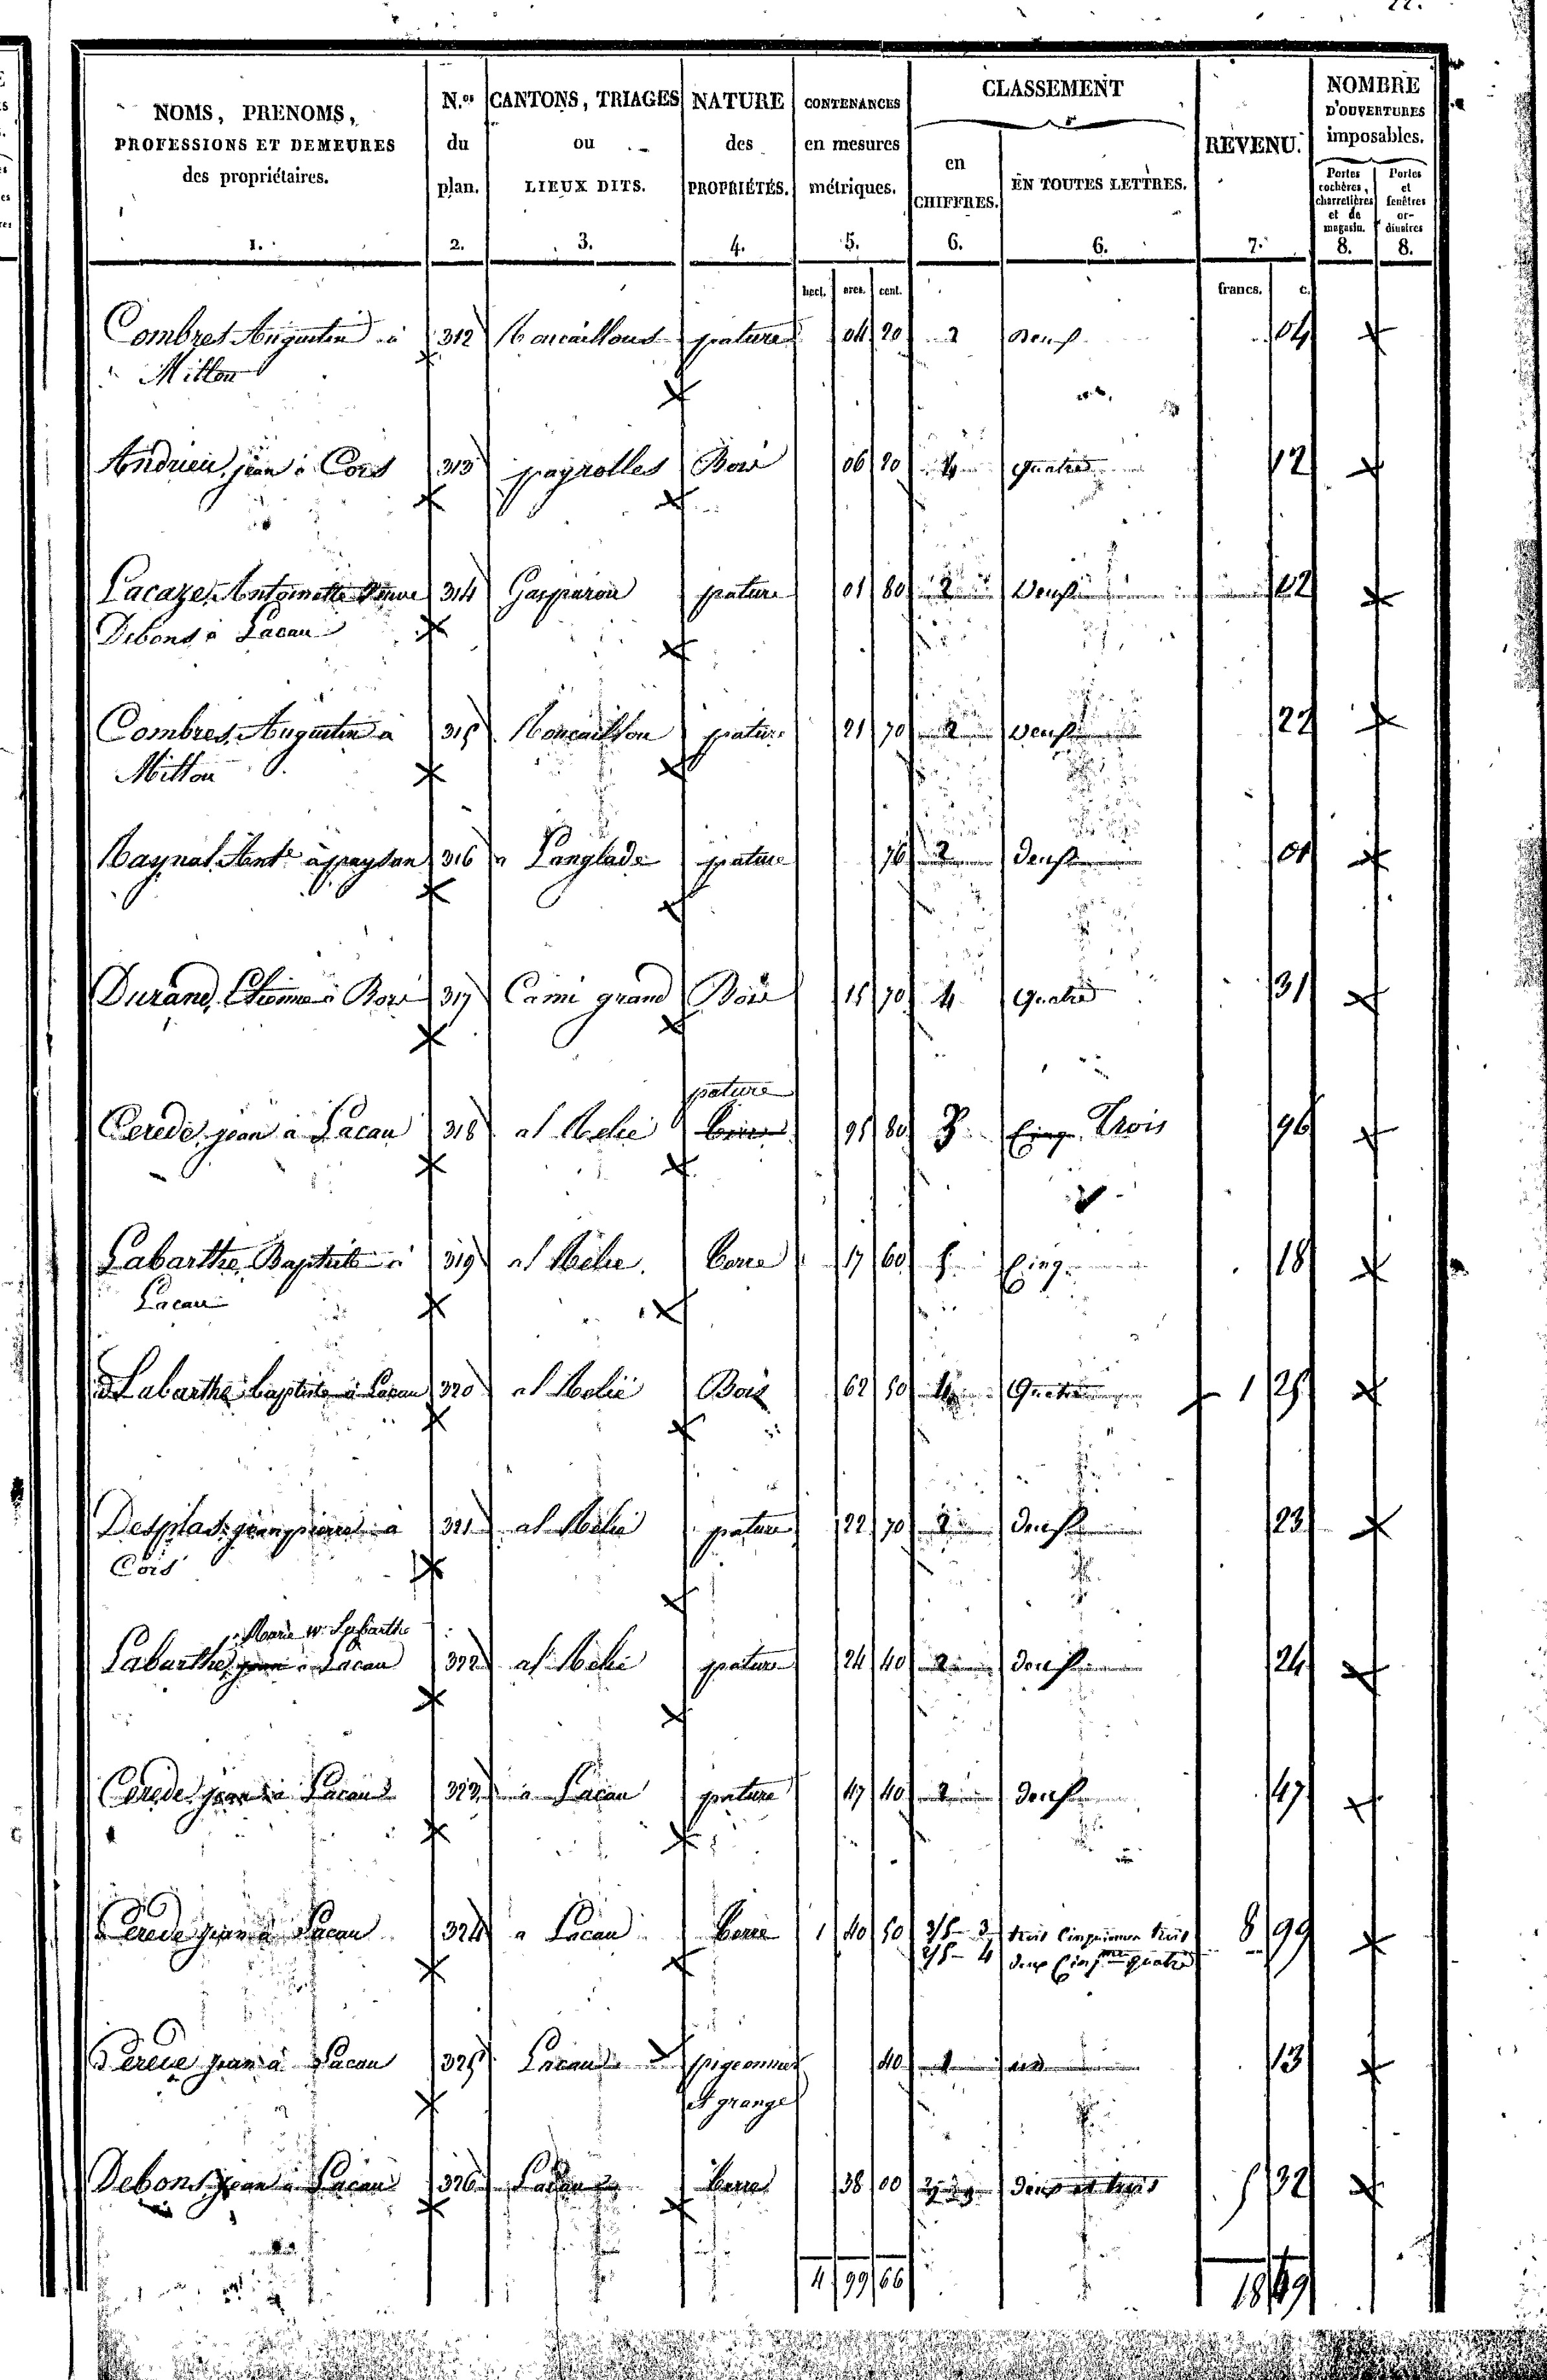 22.
NOMS, PRENOMS,
PROFESSIONS ET DEMEURES
des propriétaires.
1.
N.os
du
plan.
2.
CANTONS, TRIAGES
ou
LIEUX DITS.
3.
NATURE
des
PROPRIÉTÉS.
4.
CONTENANCES
en mesures
métriques.
5.
CLASSEMENT
en
CHIFFRES.
6.
EN TOUTES LETTRES.
6.
REVENU.
7.
NOMBRE
D'OUVERTURES
imposables.
Portes
cochères,
charretières
et de
magasin.
8.
Portes
et
fenêtres
or-
dinaires
8.
hect. ares. cent. francs. c.
Combres Augustin à 312 pature 04 20 2 Deux 04
Mitton
Andrieu jean à Cors 313 payrolles Bois 06 20 4 quatre 12
Lacaze Antoinette Veuve 314 Gasparou pature 01 80 2 Deux 02
Debons à Lacau
Combres Augustin à 315 pature 21 70 2 Deux 22
Mitton
Raynal Ante à payssan 316 a Langlade pature 76 2 deux 01
Durand, Etienne à 317 Cami grand Bois 15 70 4 Quatre 31
pature
Cerede jean à Lacau 318 al 95 80 3 Cinq Trois 96
Labarthe Baptiste à 319 al terre 17 60 5 Cinq 18
Lacau
Labarthe baptiste à Lacau 320 al Bois 62 50 4 Quatre 1 25
Desplas jean pierre à 321 al pature 22 70 2 deux 23
Cors
Marie ve Labarthe
Labarthe jean à Lacau 322 al pature 24 40 2 deux 24
Cerede jean à Lacau 323 à Lacau pature 47 40 2 deux 47
Cerede jean à Lacau 324 a Lacau terre 1 40 50 3/5 - 3 trois Cinquiemes trois 8 99
2/5 - 4 deux Cinqme quatre
Cerede jean à Lacau 325 Lacau pigeonnier 40 1 un 13
et grange
Debons jean à Lacau 326 Lacau terre 38 00 2, 3 deux et trois 5 32
4 99 66 18 49